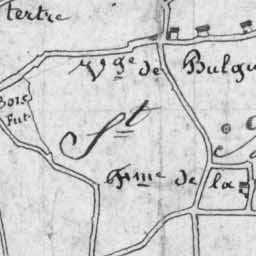 tertre
Vge de Bulgu
Bois
Fut
St
fme de la